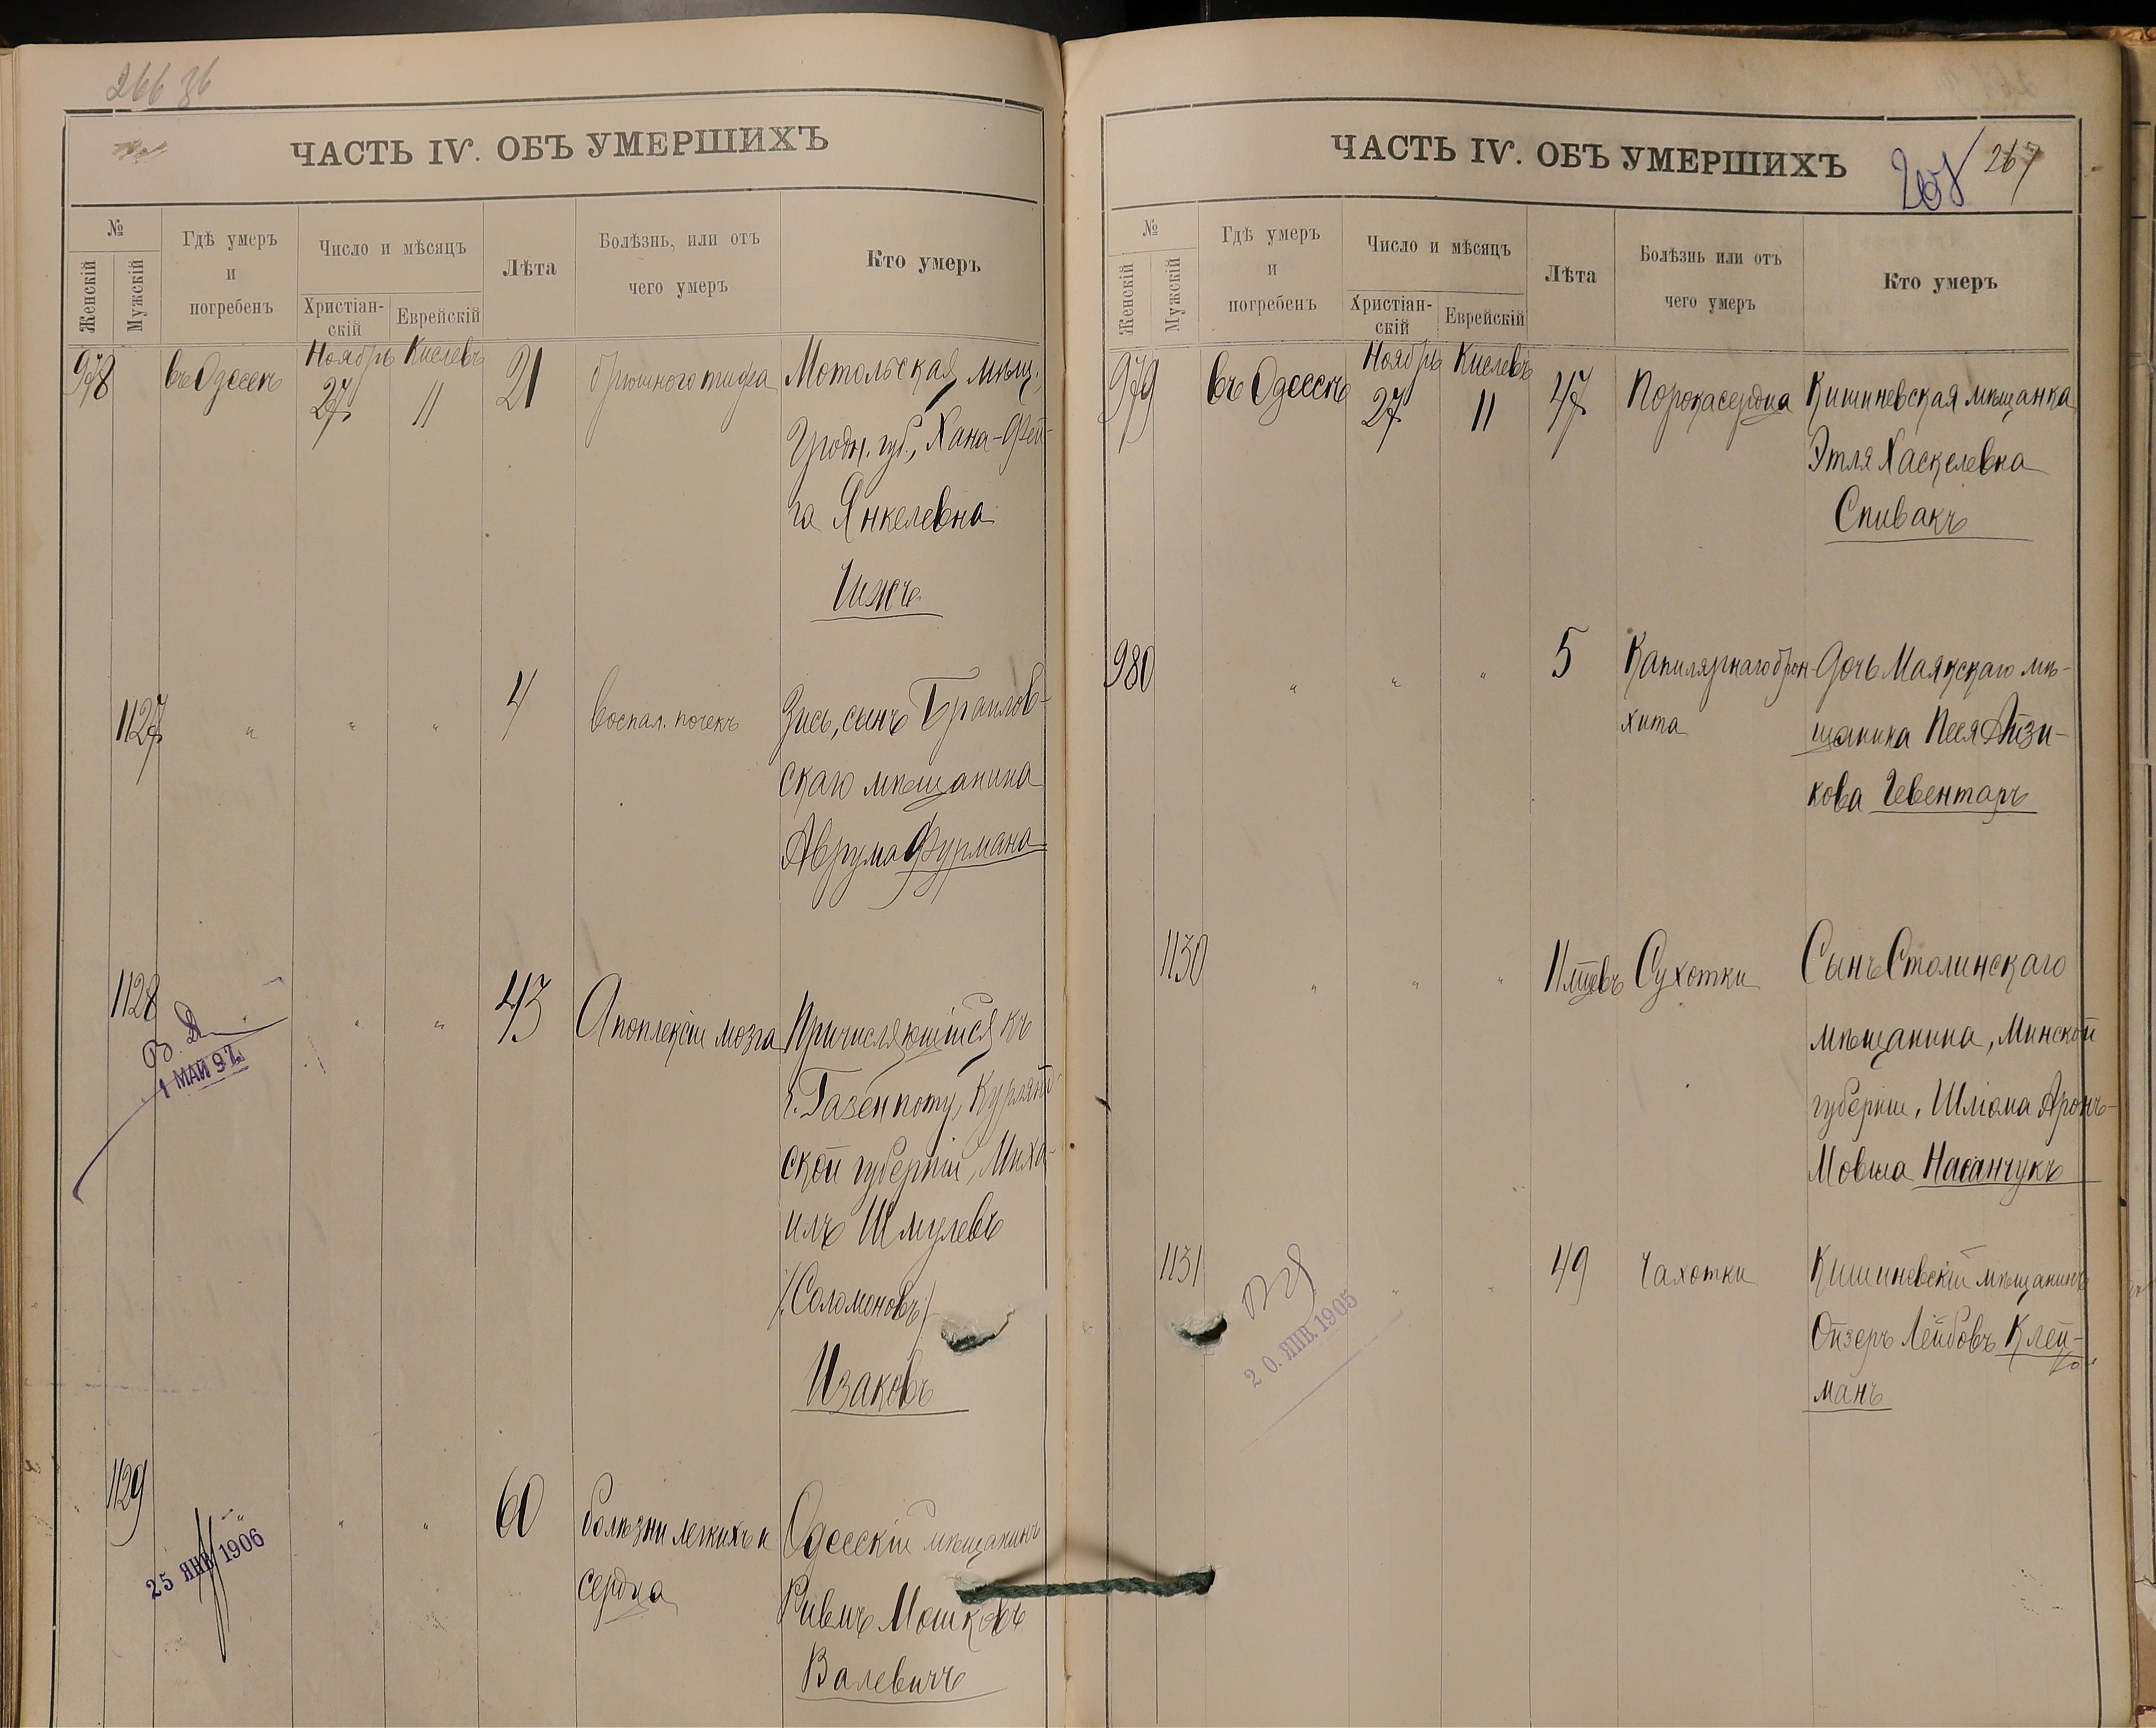 266 зв
ЧАСТЬ IV. ОБЪ УМЕРШИХЪ
№
Женскій
Мужскій
Гдѣ умеръ
и
погребенъ
Число и мѣсяцъ
Христіан-
скій
Еврейскій
Лѣта
Болѣзнь, или отъ
чего умеръ
Кто умеръ
978
въ Одессѣ
Ноябрь Кислевъ
27 11
21
брюшного тифа
Мотольская мѣщ.,
Гродн. губ., Хана-Фей-
га Янкелевна
Чижъ
1127
" " "
4
Воспал. почекъ
Зись, сынъ Браилов-
скаго мѣщанина
Аврума Фурмана
1128
" " "
1 МАЙ 97
43
Апоплексіи мозга
Причисляющійся къ
г. Газенпоту, Курлянд-
ской губерніи, Миха-
илъ Шмулевъ
/Соломоновъ/
Изаковъ
1129
" " "
25 ЯНВ 1906
60
болѣзни легкихъ и
сердца
Одесскій мѣщанинъ
Ривинъ Мошковъ
Валевичъ
ЧАСТЬ IV. ОБЪ УМЕРШИХЪ
267
№
Женскій
Мужскій
Гдѣ умеръ
и
погребенъ
Число и мѣсяцъ
Христіан-
скій
Еврейскій
Лѣта
Болѣзнь или отъ
чего умеръ
Кто умеръ
979
въ Одессѣ
Ноябрь Кислевъ
27 11
47
Порока сердца
Кишиневская мѣщанка
Этля Хаскелевна
Спивакъ
980
" " "
5
Капилярнаго брон-
хита
Дочь Маякскаго мѣ-
щанина Песя Айзи-
кова Гевентаръ
1130
" " "
11 мцевъ
Сухотки
Сынъ Столинскаго
мѣщанина, Минской
губерніи, Шліома Аронъ-
Мовша Насанчукъ
1131
" "
20. ЯНВ. 1905
49
Чахотки
Кишиневскій мѣщанинъ
Ойзеръ Лейбовъ Клей-
манъ